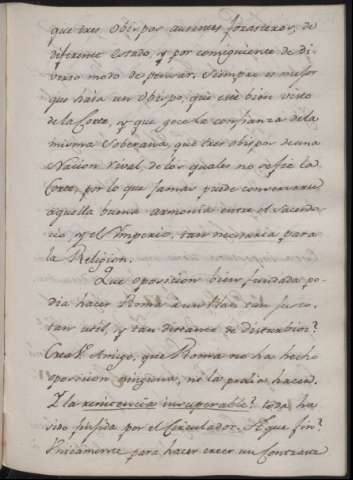 que tres Obispos ausentes, forasteros, de
diferente estado, y por consiguiente de di-
verso modo de pensar. Siempre es mejor
que haia un Obispo, que esté bien visto
de la Corte, y que goce la confianza de la
misma Soberana, que tres obispos de una
Nacion rival, de los quales no se fie la
Corte, por lo que jamas puede conservarse
aquella buena armonia entre el Sacerdo-
cio, y el Imperio, tan necesaria para
la Religion.
Que oposicion bien fundada po-
dia hacer Roma à un Plan tan justo,
tan util, y tan distante de disturbios?
Crea V. Amigo, que Roma no ha hecho
oposicion ninguna, ni la podia hacer.
Y la resistencia insuperable? todo ha
sido fingida por el Circulador. A que fin?
Unicamente para hacer creer un contraste